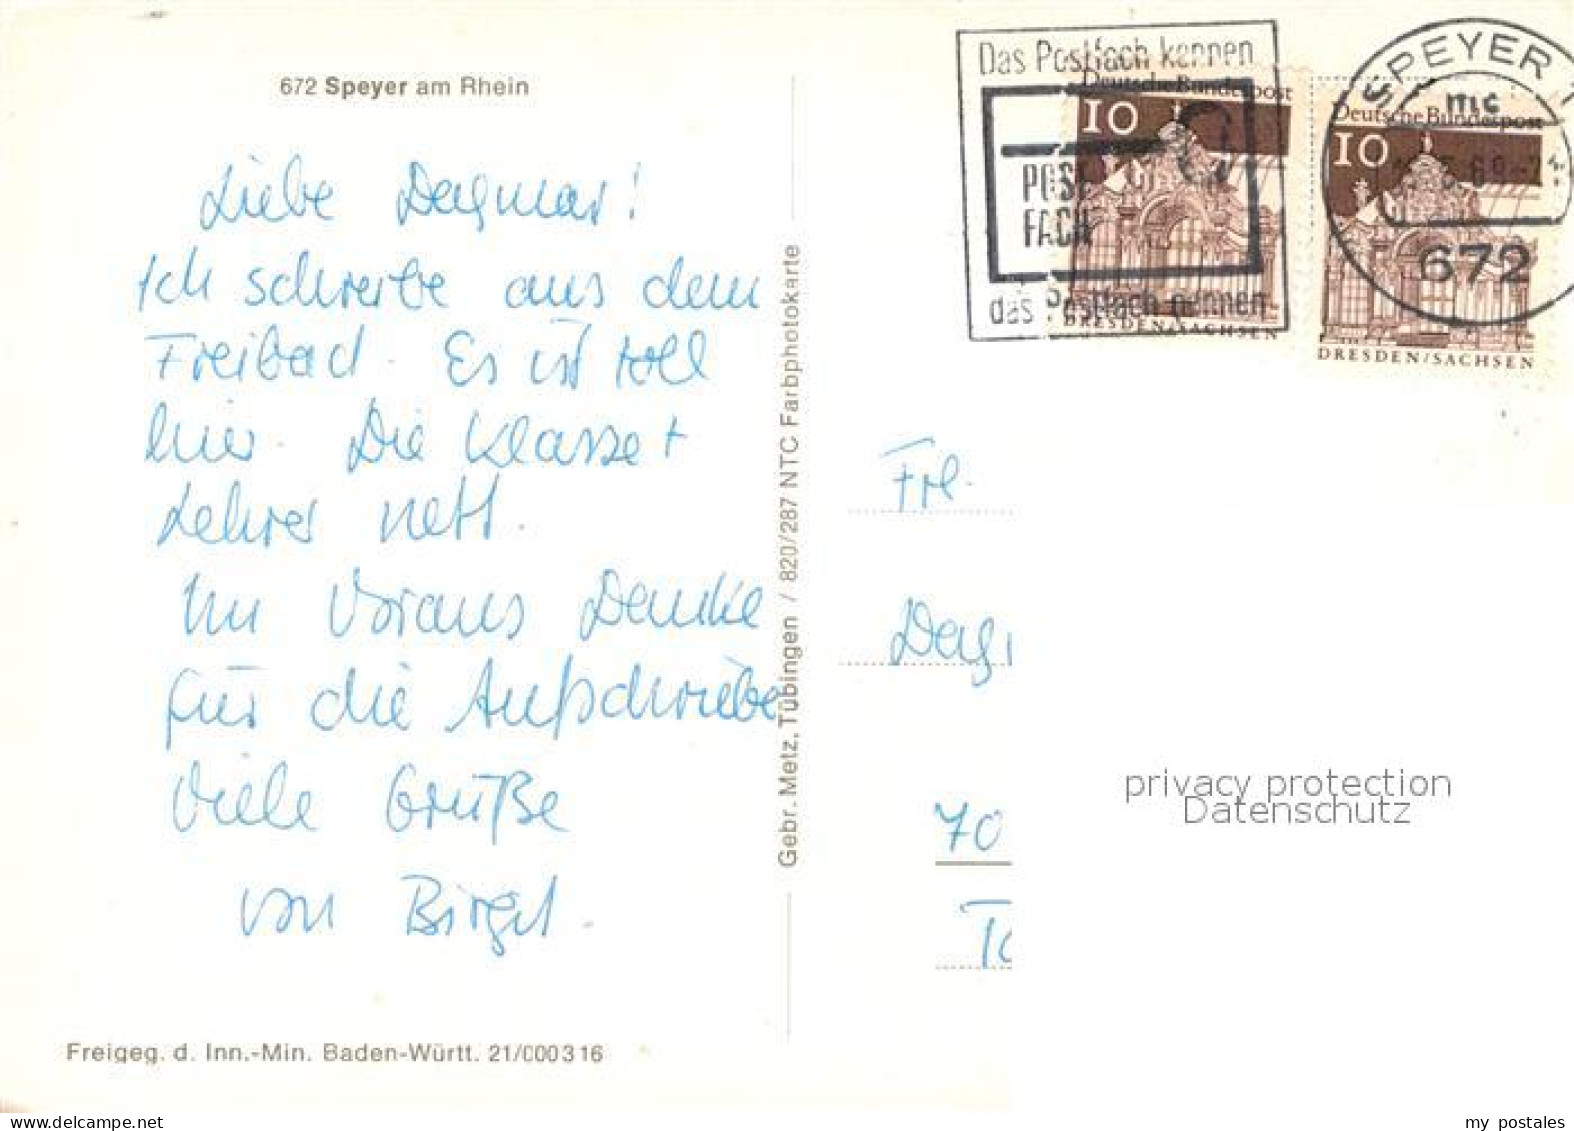 672 Speyer am Rhein
Liebe Dagmar!
Ich schreibe aus dem
Freibad. Es ist toll
hier. Die Klasse +
Lehrer nett.
Im Voraus Danke
für die Aufschriebe
Viele Grüße
von Birgit.
Freigeg. d. Inn.-Min. Baden-Württ. 21/000316
Gebr. Metz, Tübingen / 820/287 NTC Farbphotokarte
Das Postfach kennen
POST
FACH
das Postfach nennen
Deutsche Bundespost
10
DRESDEN/SACHSEN
Deutsche Bundespost
10
DRESDEN/SACHSEN
SPEYER 1
mc
672
Frl.
Dag
70
privacy protection
Datenschutz
my postales